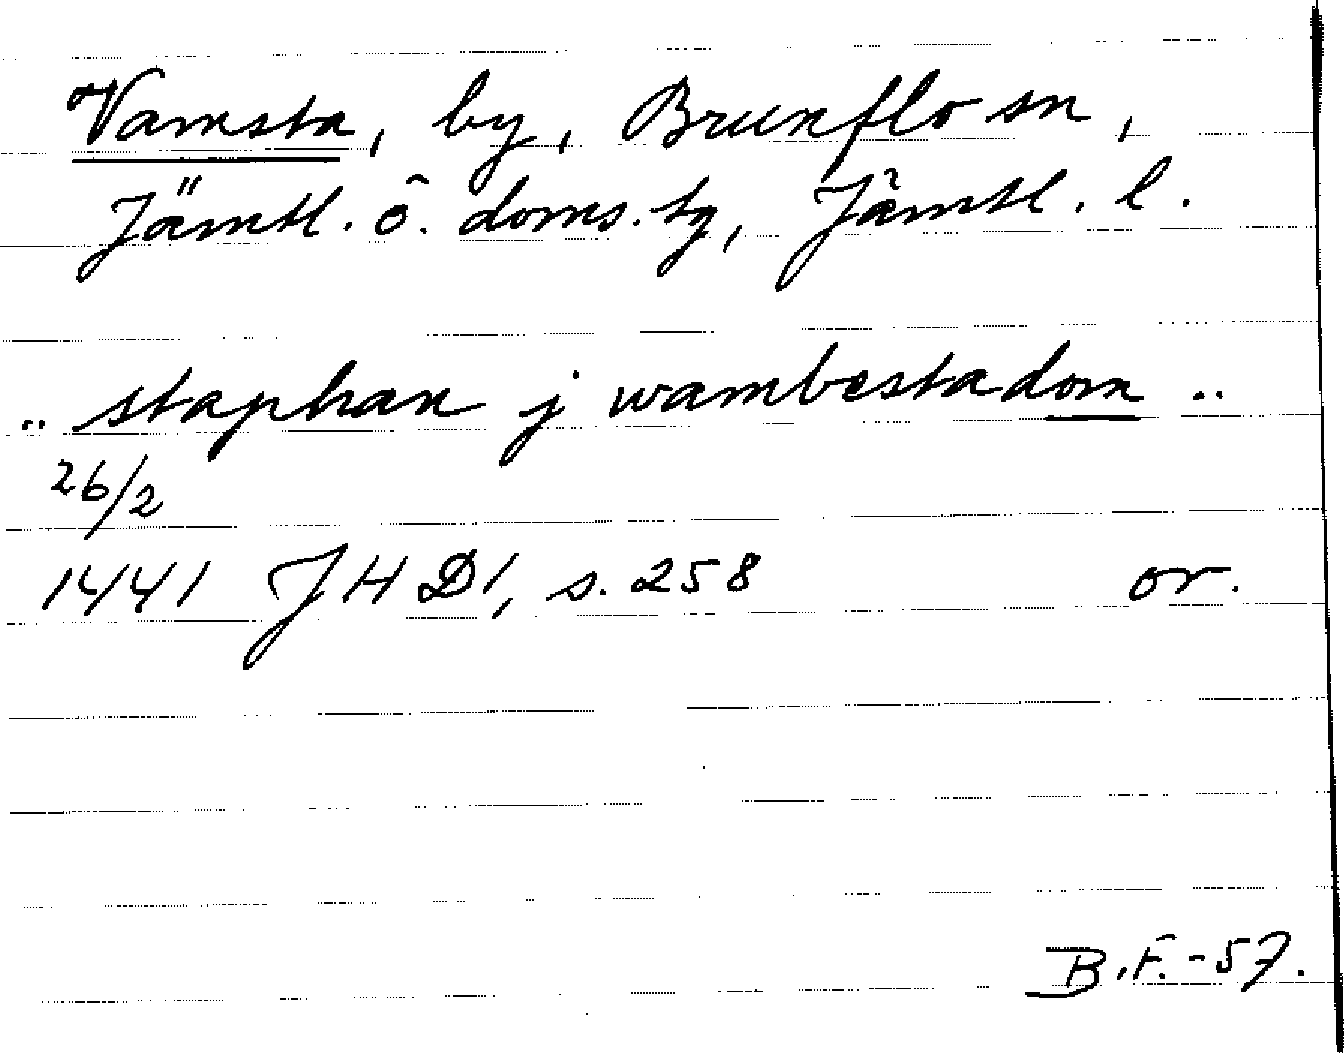 Vamsta, by, Brunflo sn,
Jämtl. ö. doms. tg, Jämtl. l.
.. staphan j wambestadom ..
26/2
1441 JHD1, s. 258 or.
B.F.-57.